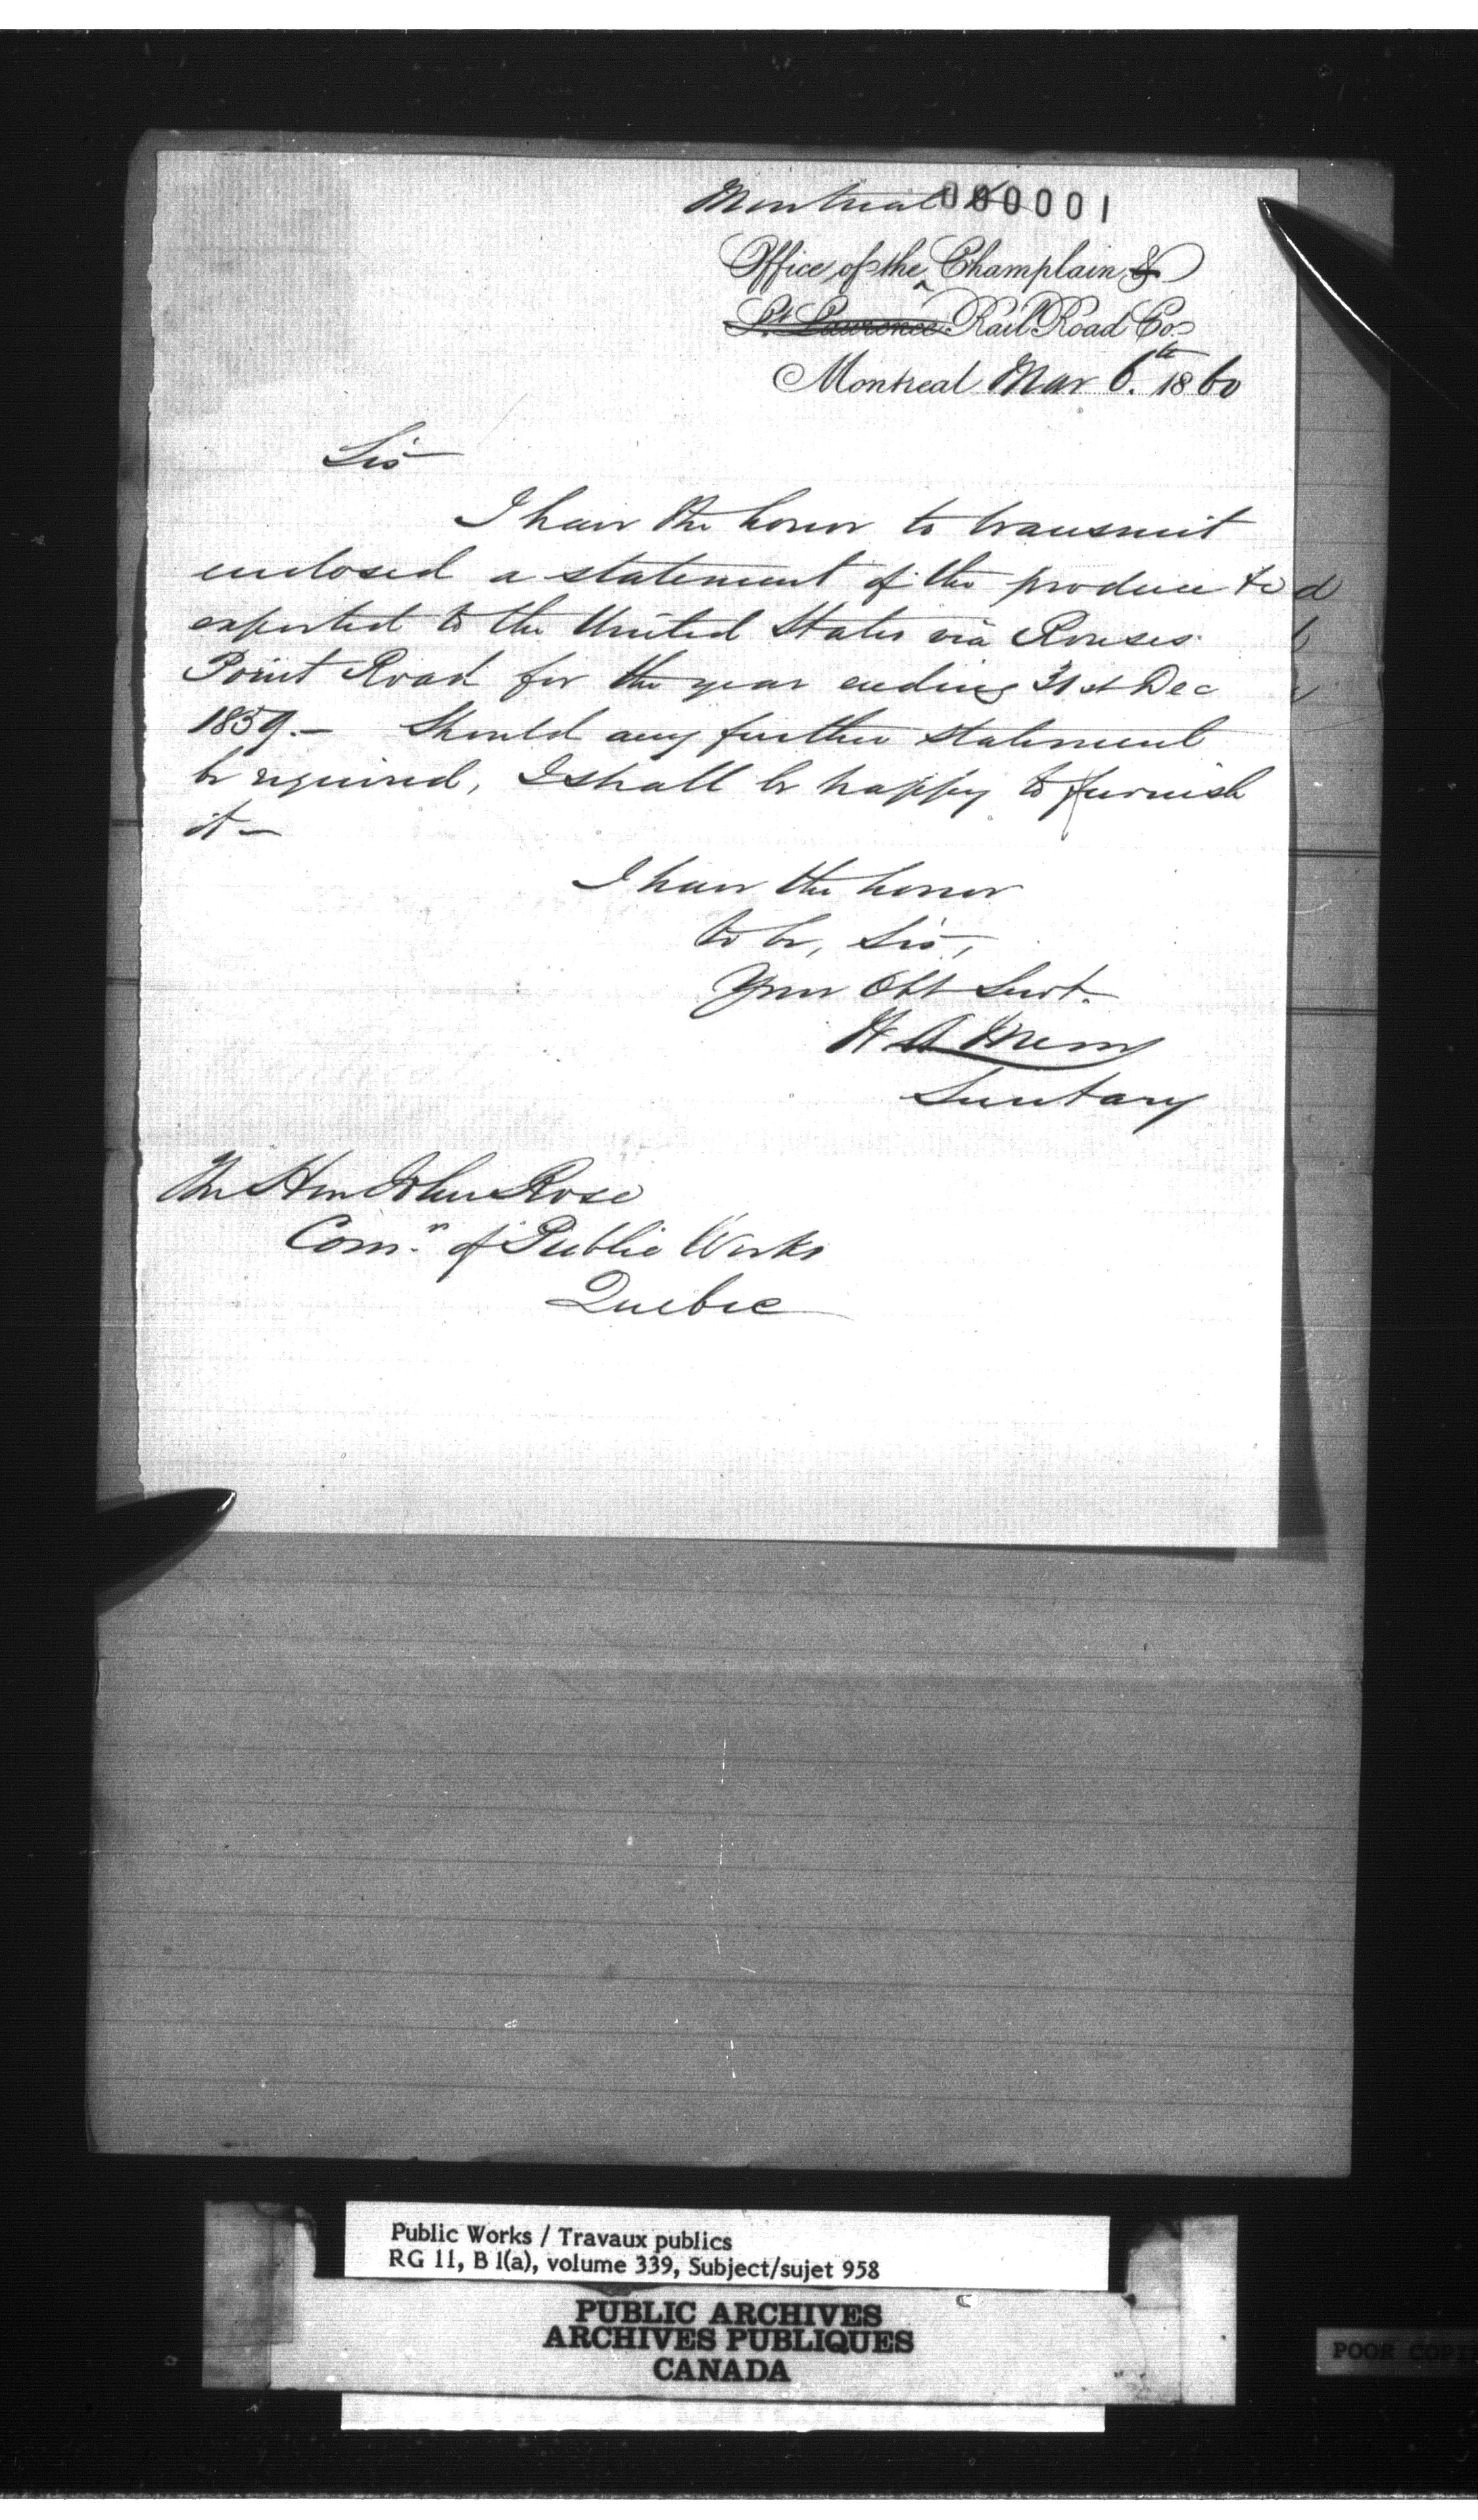 Montreal &
000001
Office of the Champlain &
St Lawrence Rail Road Co.
Montreal Mar 6th 1860
Sir
I have the honor to transmit
enclosed a statement of the produce &c
exported to the United States via Rouses
Point Road for the year ending 31st Dec
1859.— Should any further statement
be required, I shall be happy to furnish
it—
I have the honor
to be, Sir,
Your Obt Servt.
W A Merry
Secretary
The Hon John Rose
Comr. of Public Works
Quebec
Public Works / Travaux publics
RG 11, B 1(a), volume 339, Subject/sujet 958
PUBLIC ARCHIVES
ARCHIVES PUBLIQUES
CANADA
POOR COP